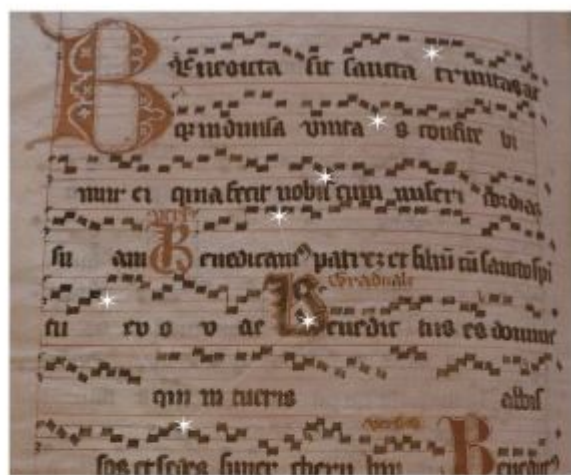 Benedicta sit sancta trinitas at
qz indiuisa vnita s confite bi
mur ei quia fecit nobiscum miseri cordiaz
vers9
su am Benedicam9 patrez et filiū cū sancto spi
Graduale
tu ev o v ae Benedic tus es domine
qui in tueris abiss
versus
sos et sedes super cheru bim Benedict